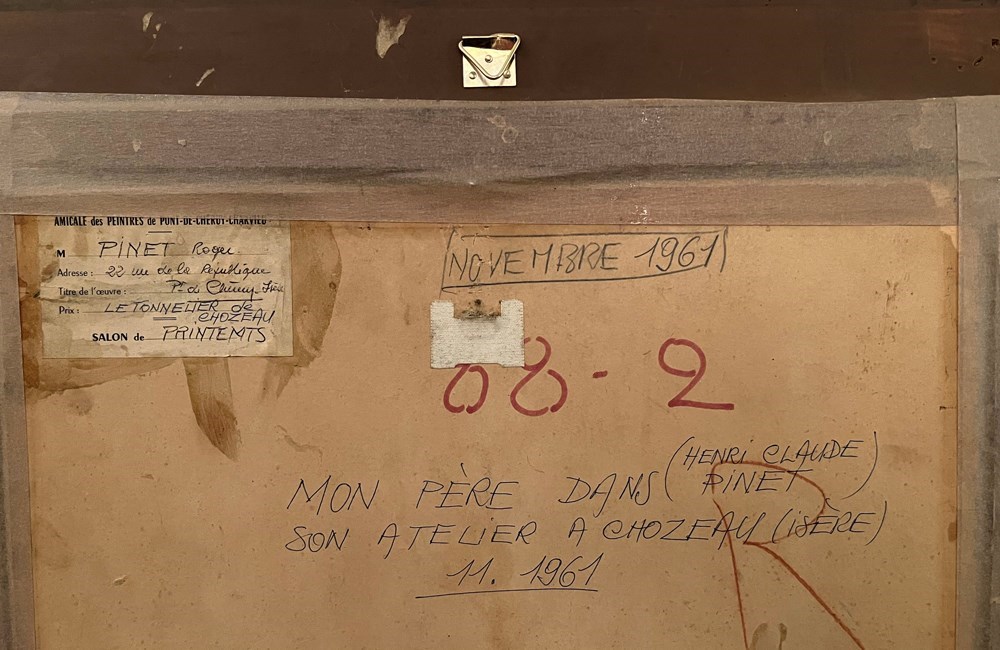 AMICALE des PEINTRES de PONT-DE-CHERUY-CHARVIEU
M PINET Roger
Adresse : 22 rue de la République
Titre de l'œuvre : Pt de Chéruy Isère
Prix : LE TONNELIER de
CHOZEAU
SALON de PRINTEMTS
NOVEMBRE 1961
08-2
(HENRI CLAUDE
MON PÈRE DANS PINET)
SON ATELIER A CHOZEAU (ISÈRE)
11. 1961
R